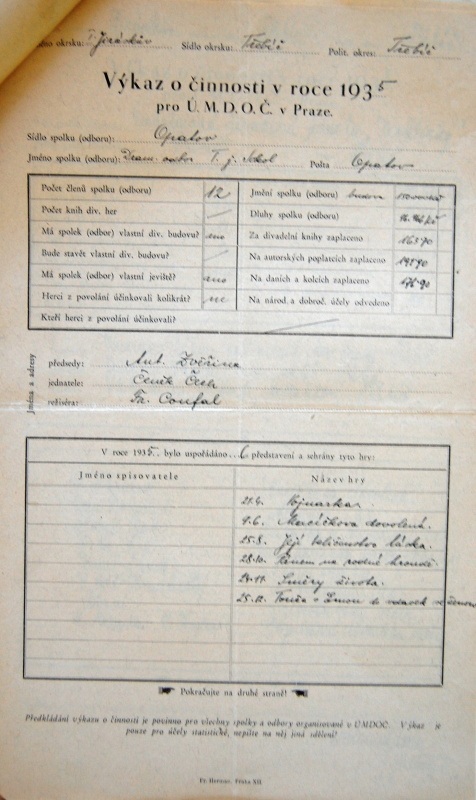 no okrsku: Jiráskův Sídlo okrsku: Třebíč Polit. okres: Třebíč
Výkaz o činnosti v roce 1935
pro Ú. M. D. O. Č. v Praze.
Sídlo spolku (odboru): Opatov
Jméno spolku (odboru): Dram. odbor T. j. Sokol Pošta Opatov
Počet členů spolku (odboru) 12 Jmění spolku (odboru) budova
Počet knih div. her Dluhy spolku (odboru)
Má spolek (odbor) vlastní div. budovu? ano Za divadelní knihy zaplaceno 163·70
Bude stavět vlastní div. budovu? Na autorských poplatcích zaplaceno
Má spolek (odbor) vlastní jeviště? ano Na daních a kolcích zaplaceno
Herci z povolání účinkovali kolikrát? ne Na národ. a dobroč. účely odvedeno
Kteří herci z povolání účinkovali?
Jména a adresy
předsedy: Ant. Zvěřina
jednatele: Čeněk Čech
režiséra: Fr. Coufal
V roce 1935.. bylo uspořádáno...6 představení a sehrány tyto hry:
Jméno spisovatele Název hry
21.4. Vojnarka
9.6. dovolená.
25.8. Její veličenstvo láska.
28.10. na rodné hroudě.
24.11. Směry života.
25.12.
Pokračujte na druhé straně!
Předkládání výkazu o činnosti je povinno pro všechny spolky a odbory organisované v ÚMDOČ. Výkaz je
pouze pro účely statistické, nepište na něj jiná sdělení!
Fr. Hermac. Praha XII.